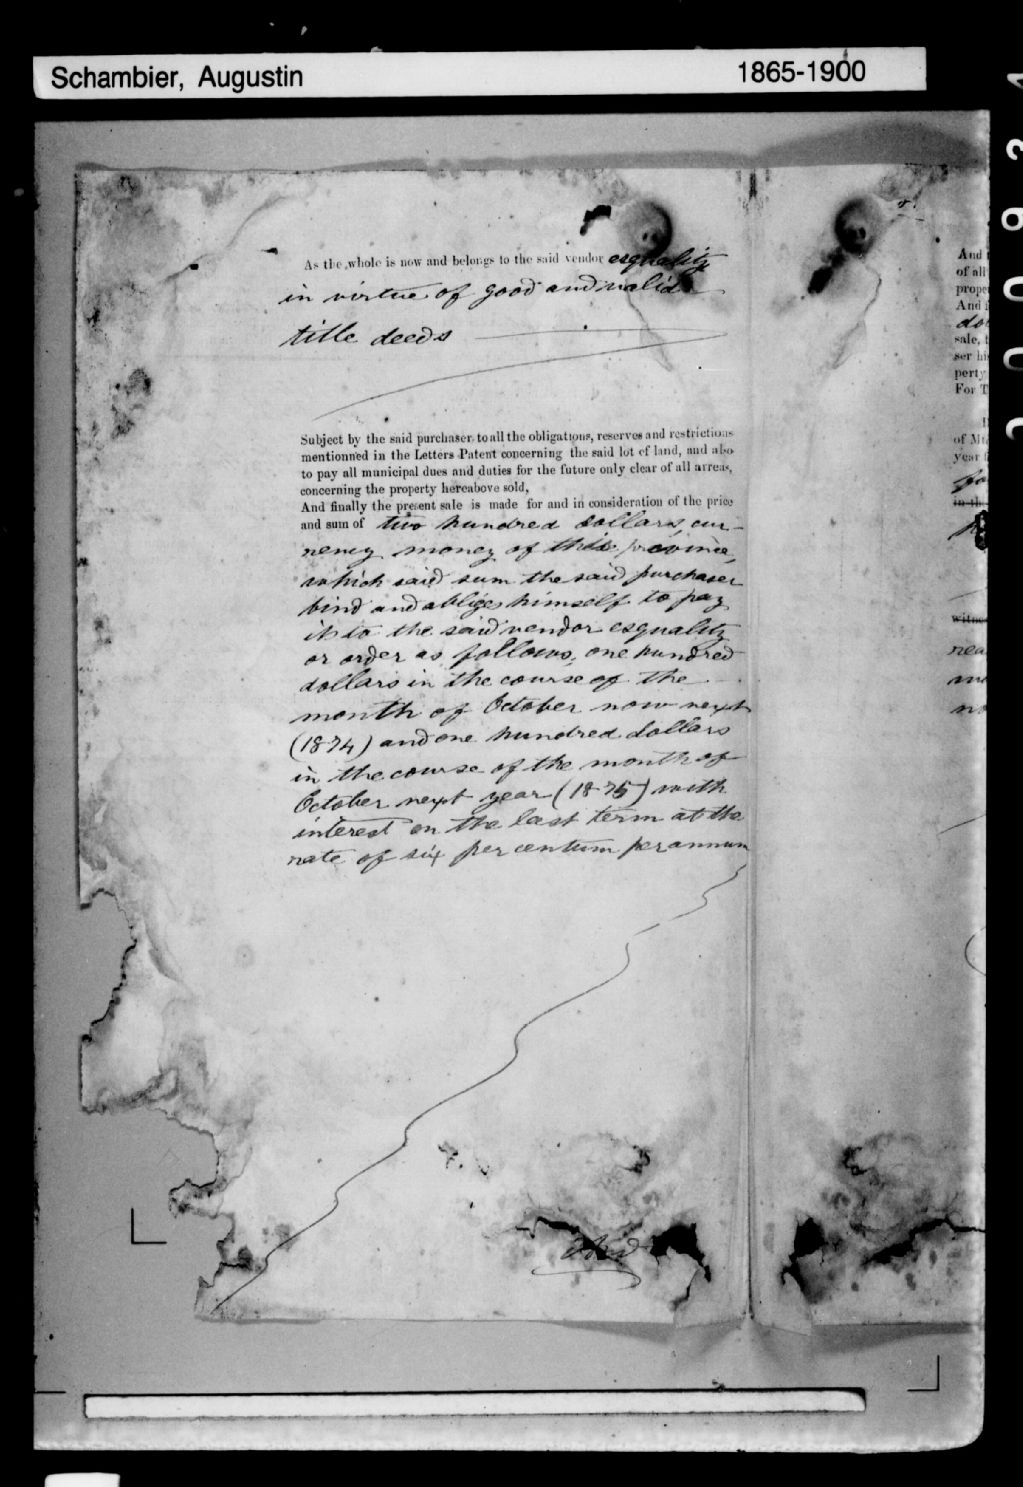 Schambier, Augustin 1865-1900
As the whole is now and belongs to the said vendor esquality
in virtue of good and valid
title deeds
Subject by the said purchaser to all the obligations, reserves and restrictions
mentionned in the Letters Patent concerning the said lot of land, and also
to pay all municipal dues and duties for the future only clear of all arreas,
concerning the property hereabove sold,
And finally the present sale is made for and in consideration of the price
and sum of two hundred dollars, cur-
rency money of this province,
which said sum the said purchaser
bind and obliges himself to pay
it to the said vendor esquality
or order as follows, one hundred
dollars in the course of the
month of October now next
(1874) and one hundred dollars
in the course of the month of
October next year (1875) with
interest on the last term at the
rate of six per centum per annum
And
of all
prope
And
sale,
ser hi
perty
For T
of Mu
year
in th
witne